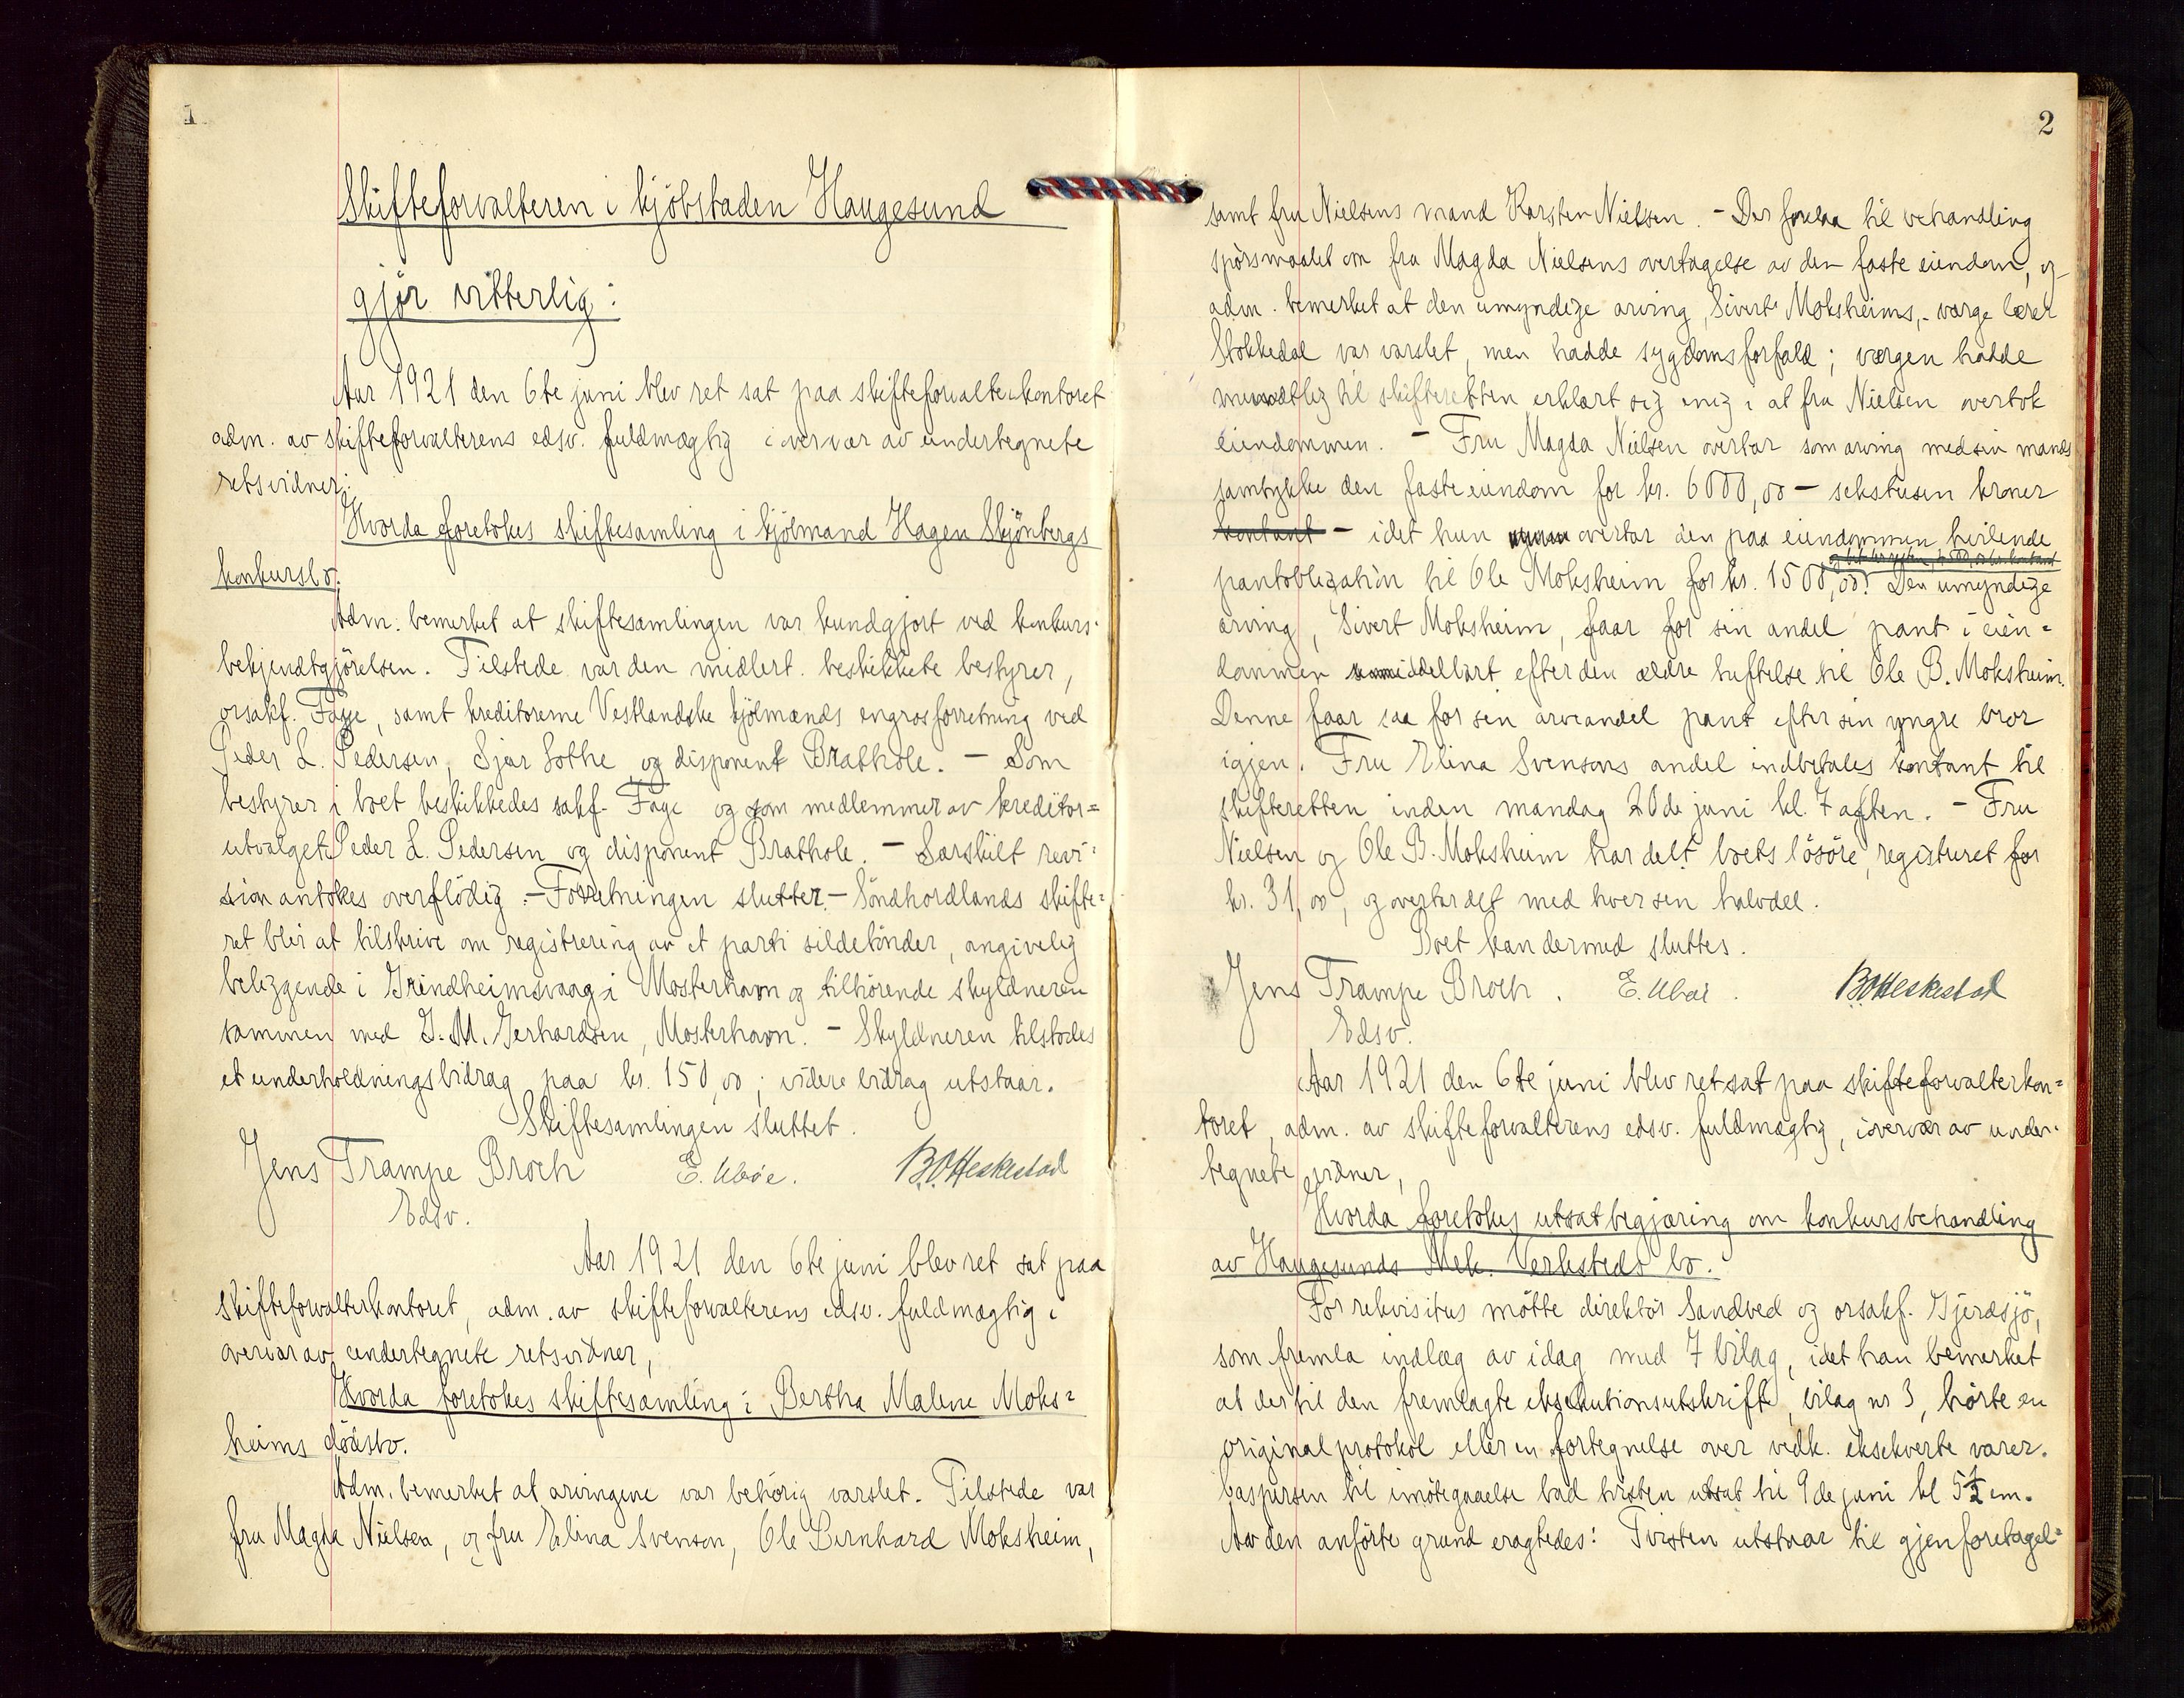 1
Skifteforvalteren i kjöbstaden Haugesund
gjör vitterlig:
Aar 1921 den 6te juni blev ret sat paa skifteforvalterkontoret
adm. av skifteforvalterens edsv. fuldmægtig i overvær av undertegnete
retsvidner;
Hvorda foretokes skiftesamling i kjölmand Hagen Skjönbergs
konkursbo.
Adm. bemerket at skiftesamlingen var kundgjort ved konkurs-
bekjendtgjörelsen. Tilstede var den midlert. beskikkete bestyrer,
orsakf. Fage, samt kreditorerne Vestlandske kjölmænds engrosforretning ved
Peder L. Pedersen, Sjur Lothe og disponent Brathole. – Som
bestyrer i boet beskikkedes sakf. Fage og som medlemmer av kreditor=
utvalget Peder L. Pedersen og disponent Brathole. – Særskilt revi=
sion antokes overflödig. – Forretningen slutter. – Söndhordlands skifte=
ret blir at tilskrive om registrering av et parti sildetönder, angivelig
beliggende i Grindheimsvaag i Mosterhavn og tilhörende skyldneren
sammen med J. M. Gerhardsen, Mosterhavn. – Skyldneren tilstodes
et underholdningsbidrag paa kr. 150,00; videre bidrag utstaar.
Skiftesamlingen sluttet.
Jens Trampe Broch E. Uböe. B. O. Heskestad
Edsv.
Aar 1921 den 6te juni blev ret sat paa
skifteforvalterkontoret, adm. av skifteforvalterens edsv. fuldmægtig i
overvær av undertegnete retsvidner,
Hvorda foretokes skiftesamling i Bertha Malene Moks=
heims dödsbo.
Adm. bemerket at arvingene var behörig varslet. Tilstede var
fru Magda Nielsen, og fru Elina Svenson, Ole Bernhard Moksheim,
2
samt fru Nielsens mand Karsten Nielsen. – Der forelaa til behandling
spörsmaalet om fru Magda Nielsens overtagelse av den faste eiendom, og
adm. bemerket at den umyndige arving, Sivert Moksheims, værge lærer
Stokkedal var varslet, men hadde sygdomsforfald; værgen hadde
mundtlig til skifteretten erklært sig enig i at fru Nielsen overtok
eiendommen. – Fru Magda Nielsen overtar som arving med sin mands
samtykke den faste eiendom for kr. 6000,00 – sekstusen kroner
kontant – idet hun overtar den paa eiendommen heilende
pantobligation til Ole Moksheim for kr. 1500,00. Den umyndige
arving, Sivert Moksheim, faar for sin andel pant i eien=
dommen umiddelbart efter den ældre heftelse til Ole B. Moksheim.
Denne faar saa for sin arveandel pant efter sin yngre bror
igjen. Fru Elina Svensons andel indbetales kontant til
skifteretten inden mandag 20de juni kl. 7 aften. – Fru
Nielsen og Ole B. Moksheim har delt boets lösöre, registreret for
kr. 31,00, og overtar det med hver sen halvdel.
Boet kan dermed sluttes.
Jens Trampe Broch. E. Uböe. B. O. Heskestad
Edsv.
Aar 1921 den 6te juni blev ret sat paa skifteforvalterkon=
toret, adm. av skifteforvalterens edsv. fuldmægtig, i overvær av under-
tegnete vidner,
Hvorda foretokes utsat begjæring om konkursbehandling
av Haugesunds Mek. Verksteds bo.
For rekvisitus mötte direktör Sandved og orsakf. Gjerdsjö,
som fremla indlæg av idag med 7 bilag, idet han bemerket
at der til den fremlagte eksekutionsutskrift, bilag nr 3, hörte en
originalprotokol eller en fortegnelse over vedk. eksekverte varer.
Caspersen til imötegaaelse bad tvisten utsat til 9de juni kl 5½ em.
Av den anförte grund eragtedes: Tvisten utstaar til gjenforetagel=